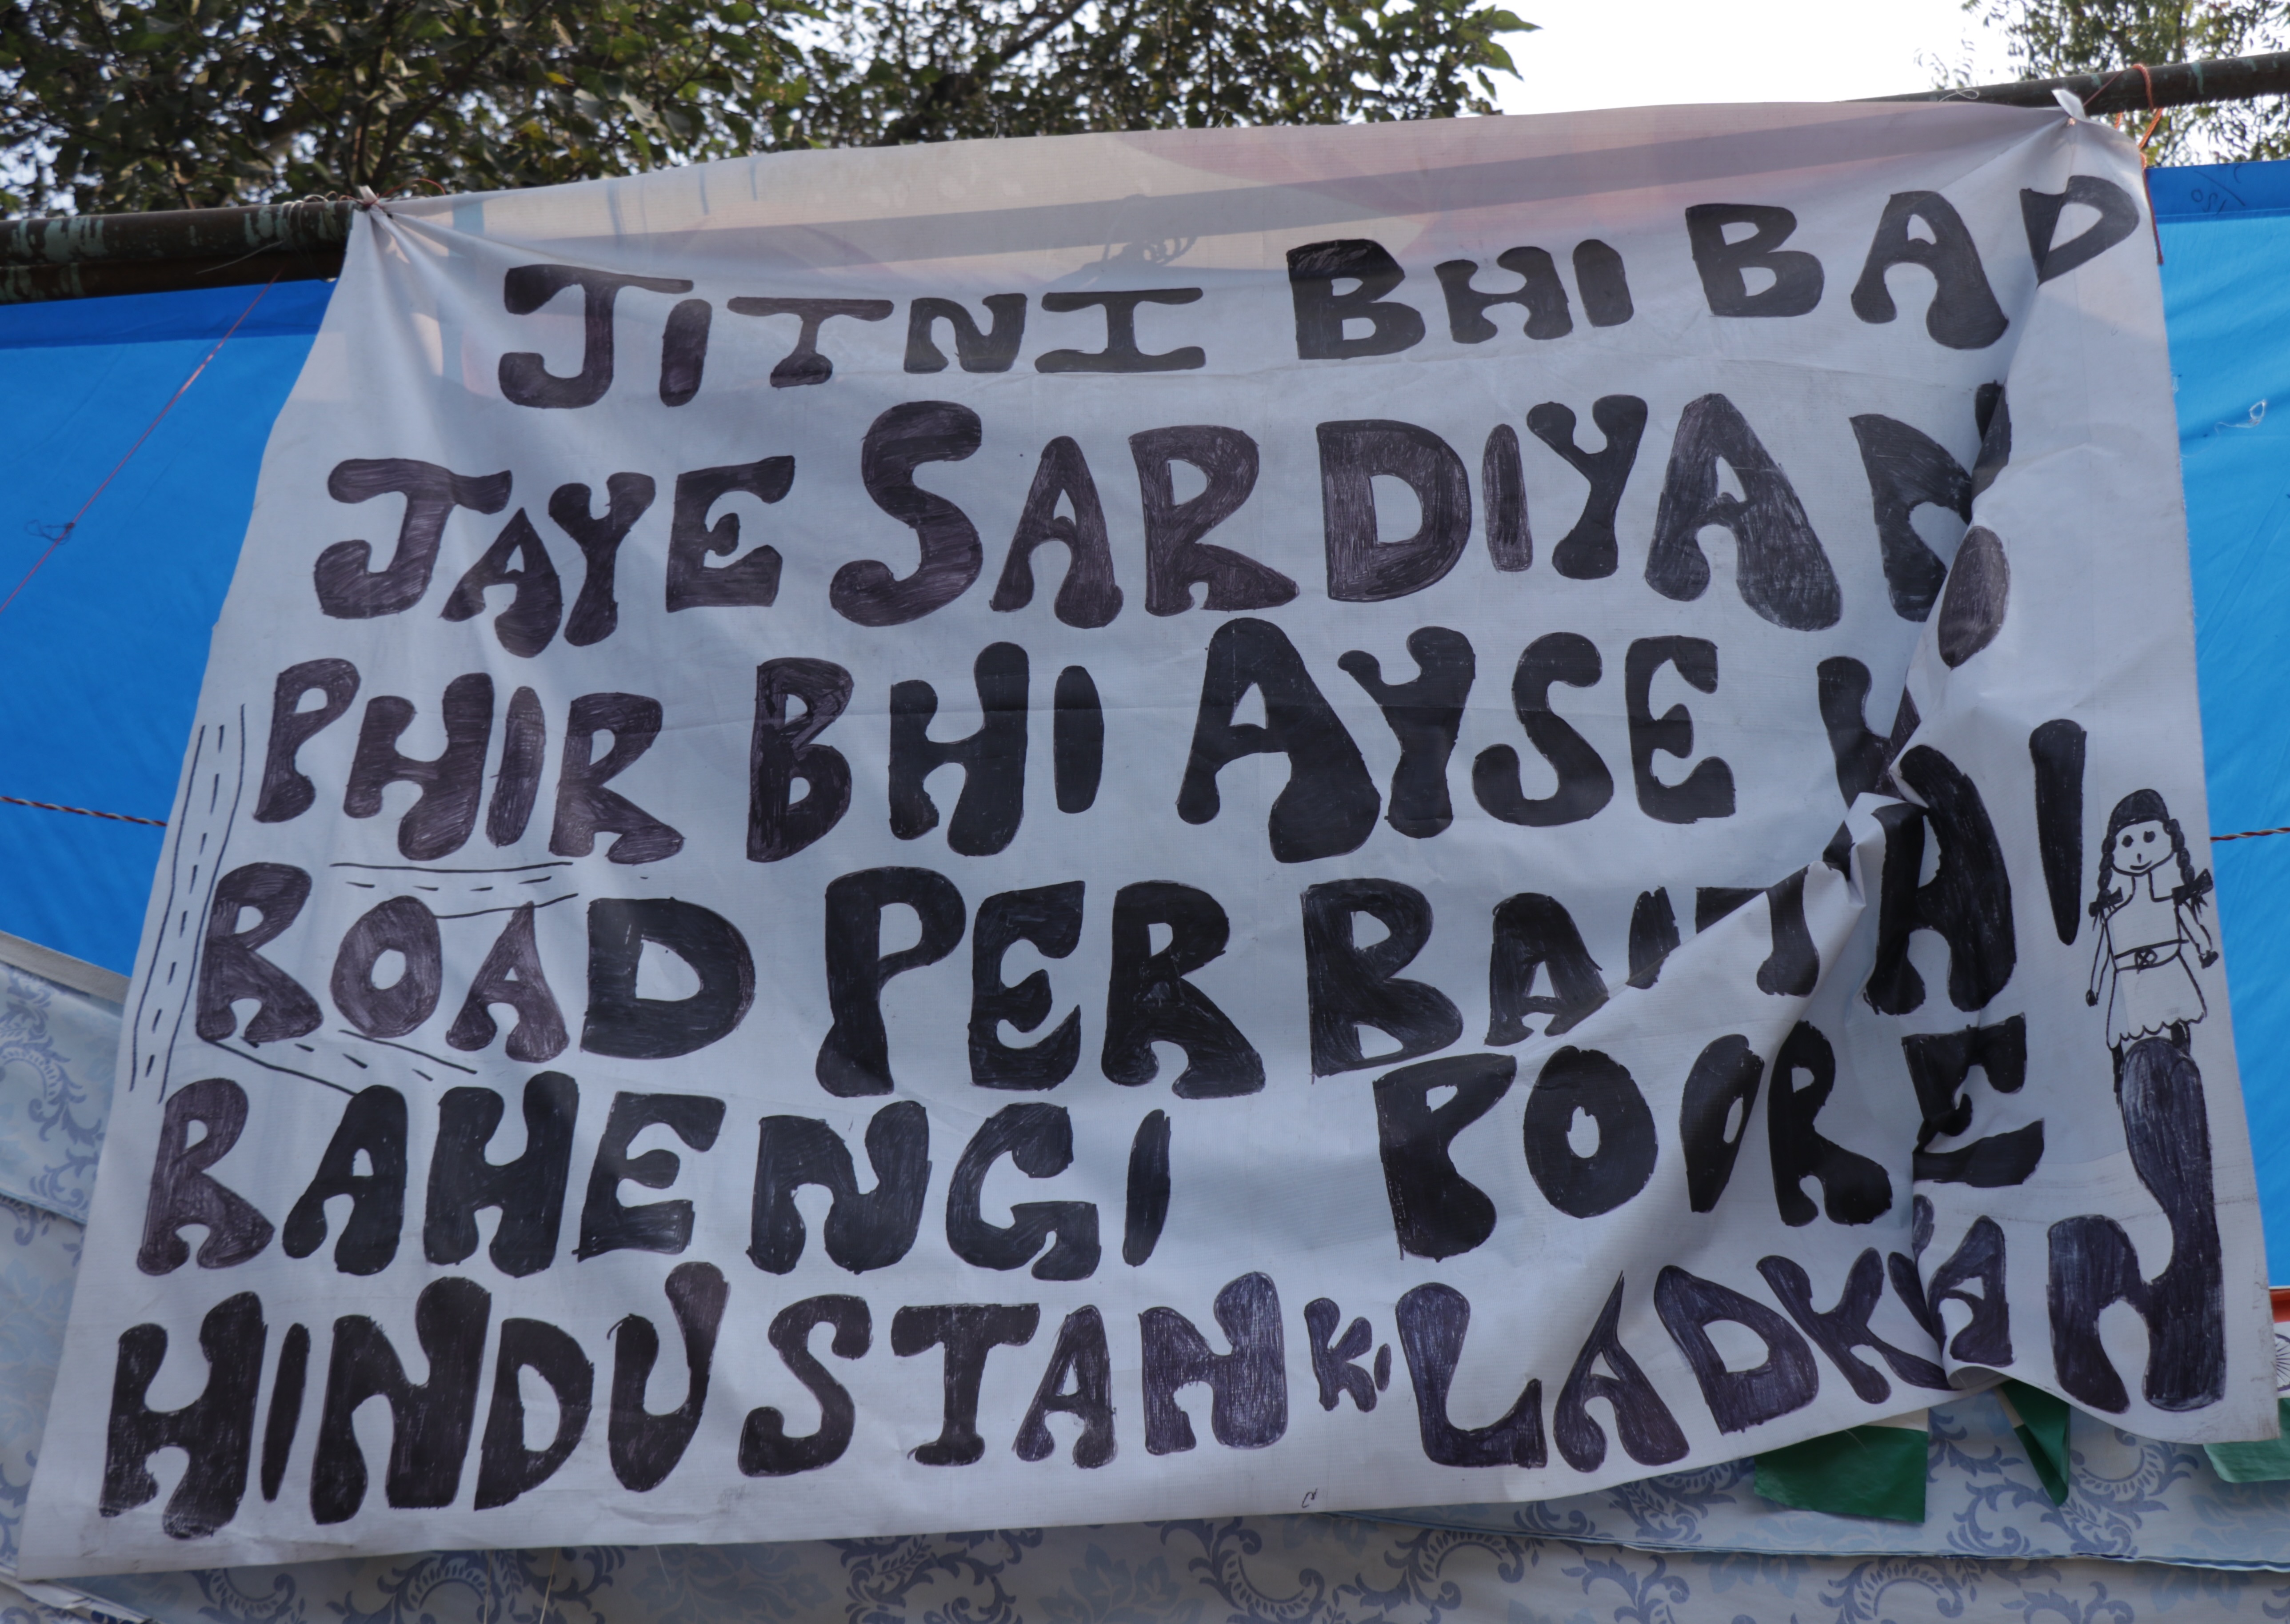 JITNI BHI BAD
JAYE SARDIYAN
PHIR BHI AYSE
ROAD PER BAITHI
RAHENGI POORE
HINDUSTAN KI LADKIAN